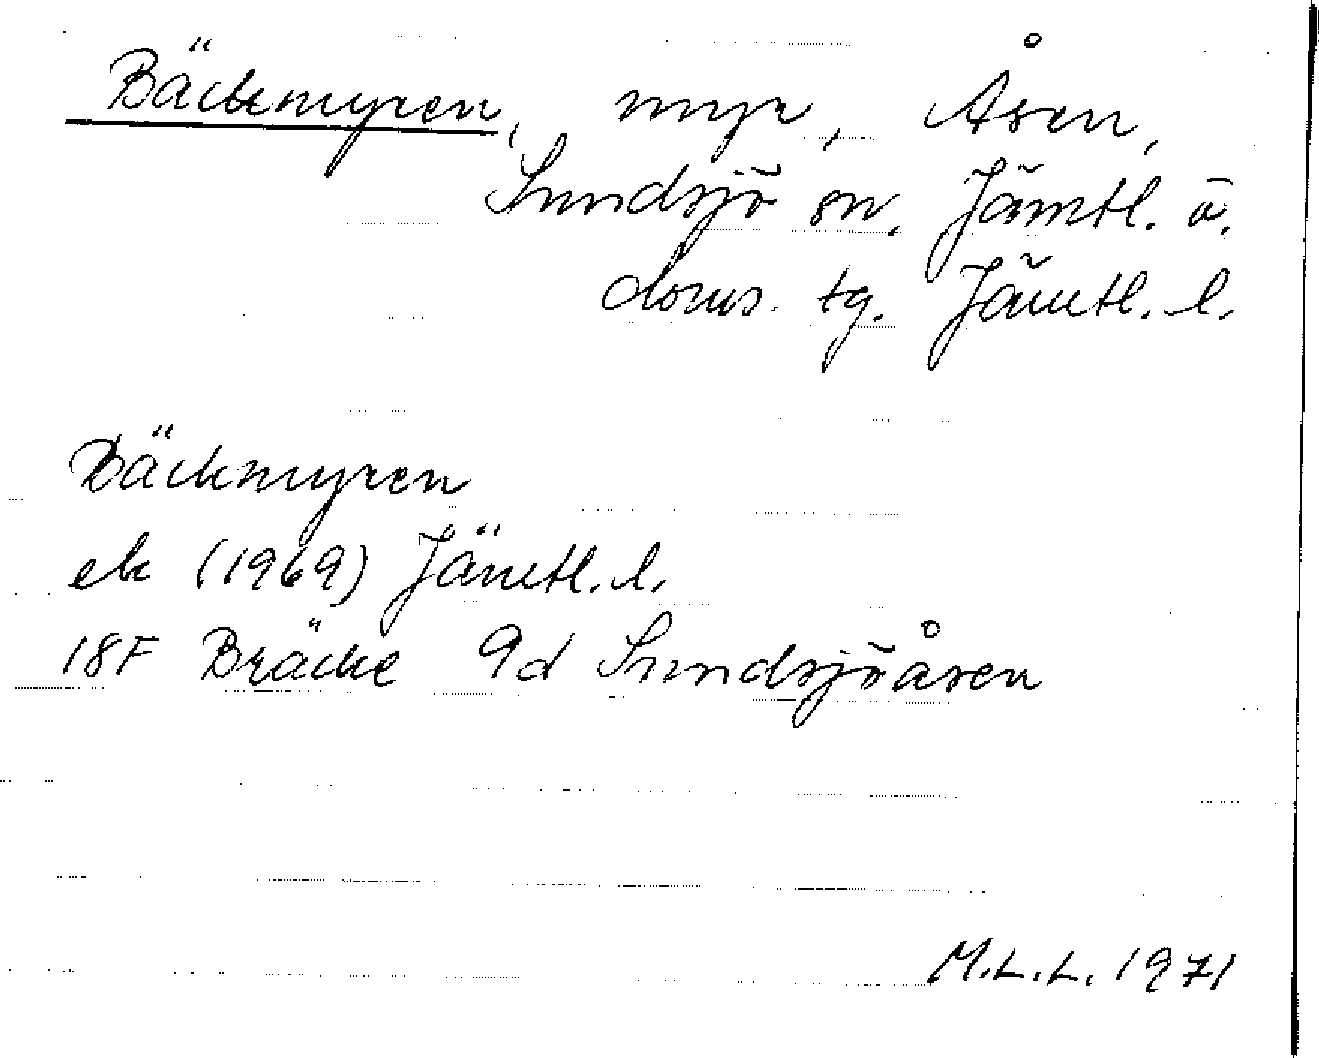 Bäckmyren, myr, Åsen,
Sundsjö sn, Jämtl. ö.
doms. tg. Jämtl. l.
Bäckmyren
ek (1969) Jämtl. l.
18F Bräcke 9d Sundsjöåsen
M.L.L. 1971